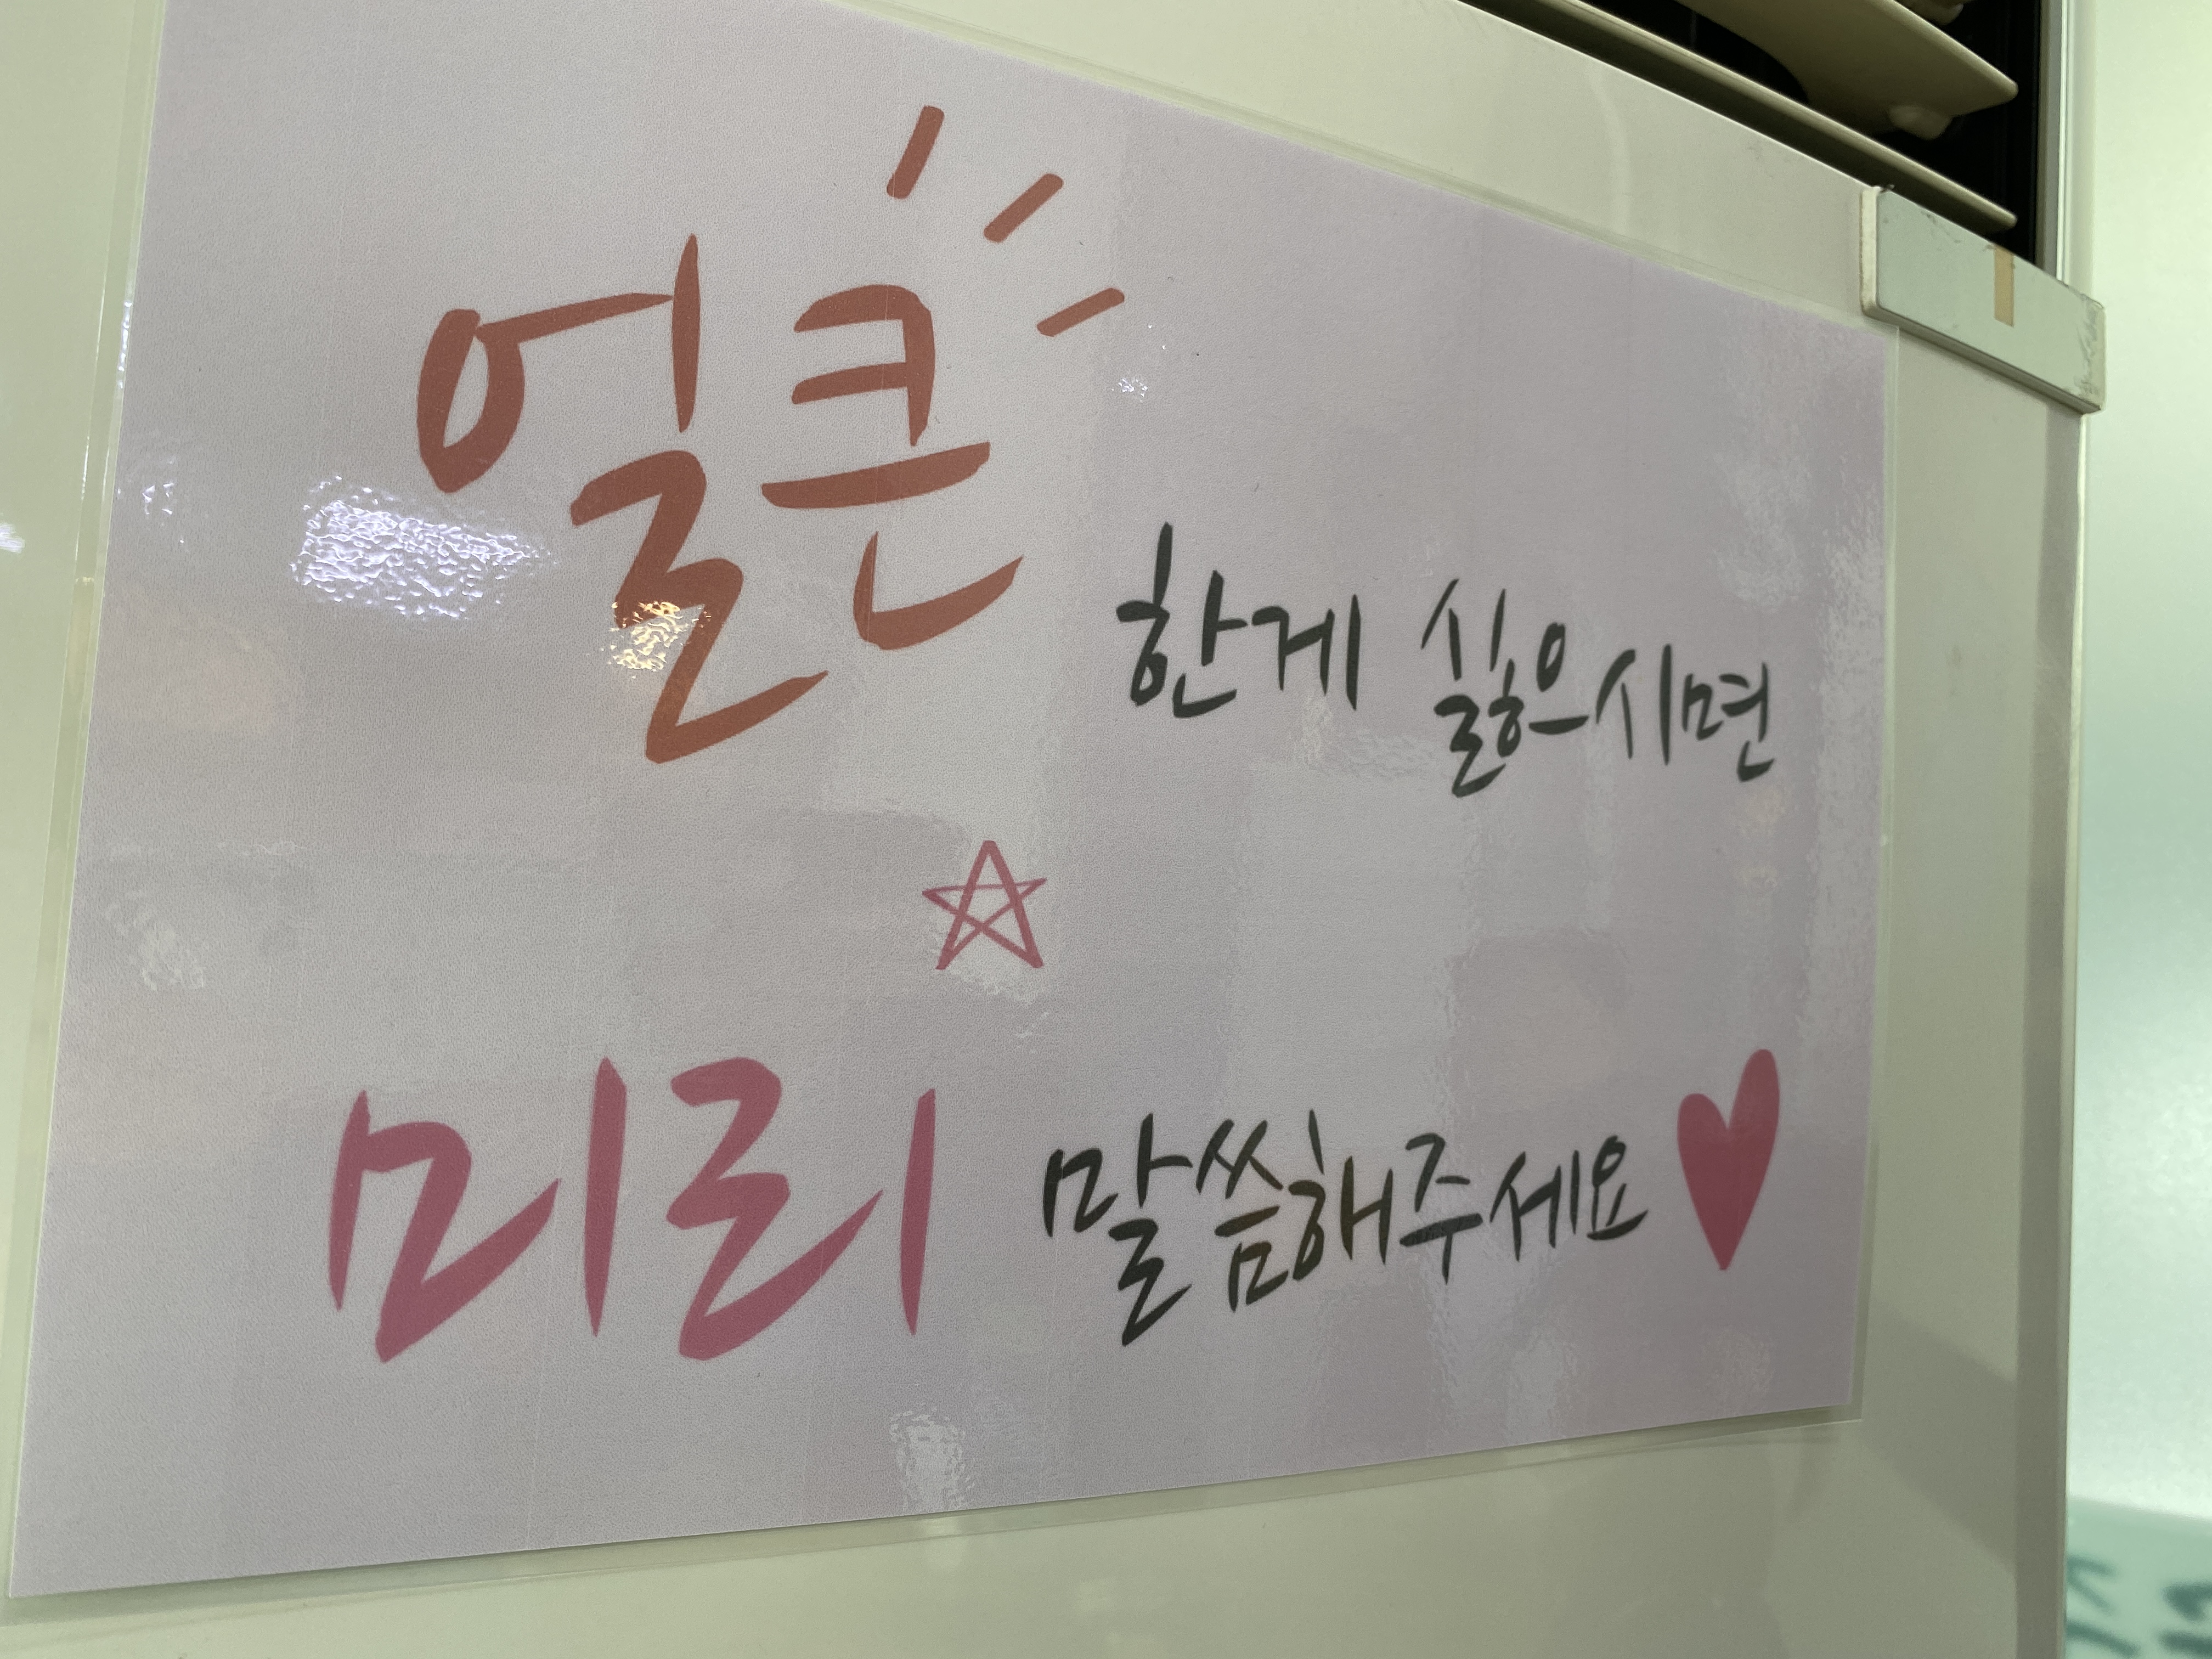 얼큰한게 싫으시면
미리 말씀해주세요